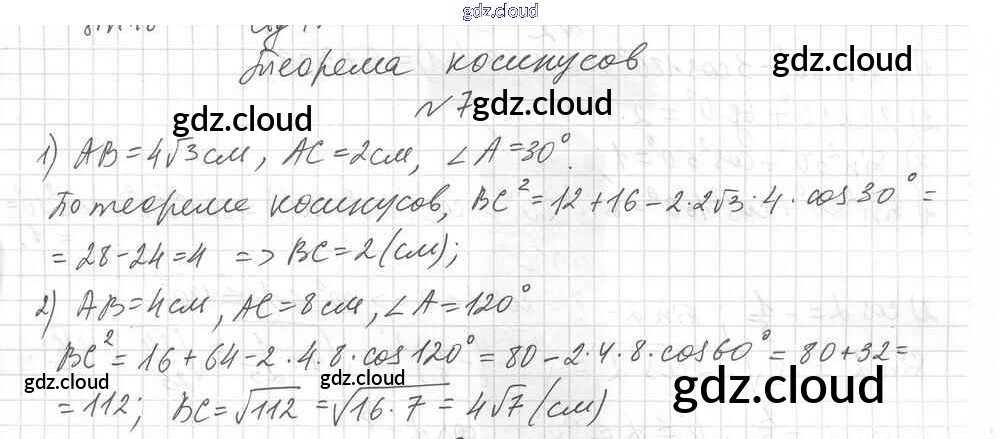 gdz.cloud
Теорема косинусов
gdz.cloud
№7
gdz.cloud
gdz.cloud
1) AB=4√3см, AC=2см, ∠A=30°.
По теореме косинусов, BC²=12+16-2·2√3·4·cos30°=
=28-24=4 => BC=2(см);
2) AB=4см, AC=8см, ∠A=120°
BC²=16+64-2·4·8·cos120°=80-2·4·8·cos60°=80+32=
gdz.cloud
gdz.cloud
gdz.cloud
=112; BC=√112=√16·7=4√7(см)